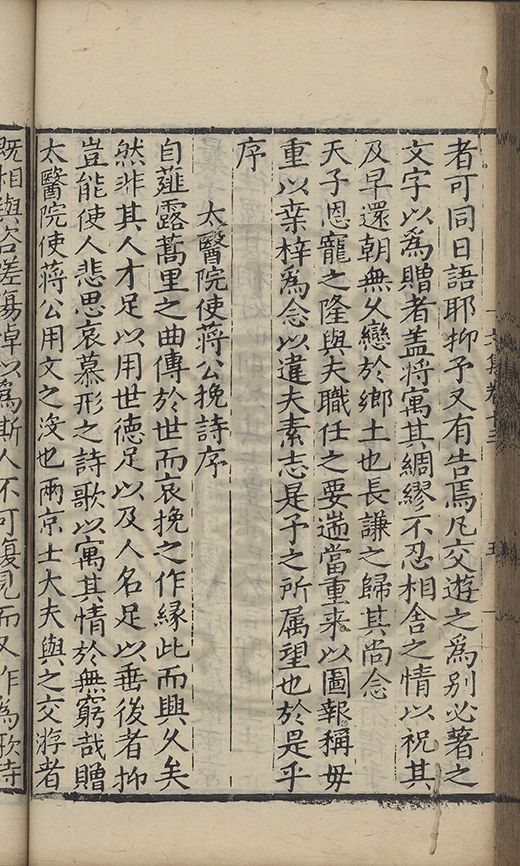 者可同日語耶抑予又有告焉凡交遊之為別必著之
文字以為贈者盖將寓其綢繆不忍相舍之情以祝其
及早還朝無久戀於鄉土也長謙之歸其尚念
天子恩寵之隆與夫職任之要耑當重来以圖報稱毋
重以桒梓為念以違夫素志是予之所属望也於是乎
序
太醫院使蔣公挽詩序
自薤露蒿里之曲傳於世而哀挽之作縁此而興久矣
然非其人才足以用世徳足以及人名足以垂後者抑
豈能使人悲思哀慕形之詩歌以寓其情於無窮哉贈
太醫院使蔣公用文之沒也兩京士大夫與之交游者
既相與咨嗟傷悼以為斯人不可復見而又作為歌诗
文集卷十三
五